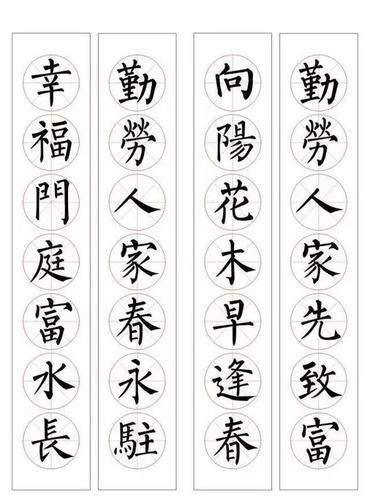 勤勞人家先致富
向陽花木早逢春
勤勞人家春永駐
幸福門庭富水長